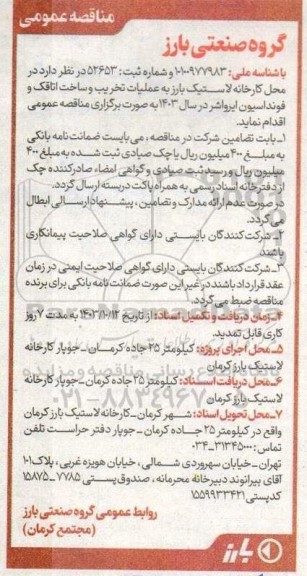 مناقصه عمومی
گروه صنعتی بارز
با شناسه ملی: ۱۰۱۰۰۹۷۷۹۸۳ و شماره ثبت: ۵۲۶۵۳ در نظر دارد در
محل کارخانه لاستیک بارز به عملیات تخریب و ساخت اتاقک و
فونداسیون ایرواشر در سال ۱۴۰۳ به صورت برگزاری مناقصه عمومی
اقدام نماید.
۱ـ بابت تضامین شرکت در مناقصه، می‌بایست ضمانت نامه بانکی
به مبلـغ ۴۰۰ میلیون ریال یا چک صیادی ثبت شده به مبلغ ۴۰۰
میلیون ریال و رسید ثبت صیادی و گواهی امضاء صادرکننده چک
از دفترخانه اسناد رسمی به همراه پاکت دربسته ارسال گردد.
در صورت عدم ارائه مدارک و تضامین، پیشنهاد ارسـالی ابطال
می گردد.
۲ـ شرکت کنندگان بایستی دارای گواهی صلاحیت پیمانکاری
باشند
۳ـ شرکت کنندگان بایستی دارای گواهی صلاحیت ایمنی در زمان
عقد قرارداد باشند در غیر این صورت ضمانت نامه بانکی برای برنده
مناقصه ضبط می گردد.
۴ـ زمان دریافت و تکمیل اسناد: از تاریخ ۱۴۰۳/۱۰/۱۲ به مدت ۷ روز
کاری قابل تمدید.
۵ـ محل اجرای پروژه: کیلومتر ۲۵ جاده کرمـان ـ جوپار کارخانه
لاستیک بارز کرمان
۶ـ محل دریافت اسناد: کیلومتر ۲۵ جاده کرمان ـ جوپار کارخانه
لاستیک بارز کرمان
۷ـ محل تحویل اسناد: شهر کرمان ـ کارخانه لاستیک بارز کرمان
واقع در کیلومتر ۲۵ جـاده کرمـان ـ جوپار دفتر حراست تلفن
تماس: ۳۱۳۴۵۰۰۰-۰۳۴
تهران ـ خیابان سهروردی شمـالی، خیابان هویزه غربی، پلاک ۱۰۱
آقای بیرانوند دبیرخانه محرمانه، صندوق پستی ۷۷۸۵ ـ ۱۵۸۷۵
کدپستی ۱۵۵۹۹۳۳۴۲۱
روابط عمومی گروه صنعتی بارز
(مجتمع کرمان)
بارز